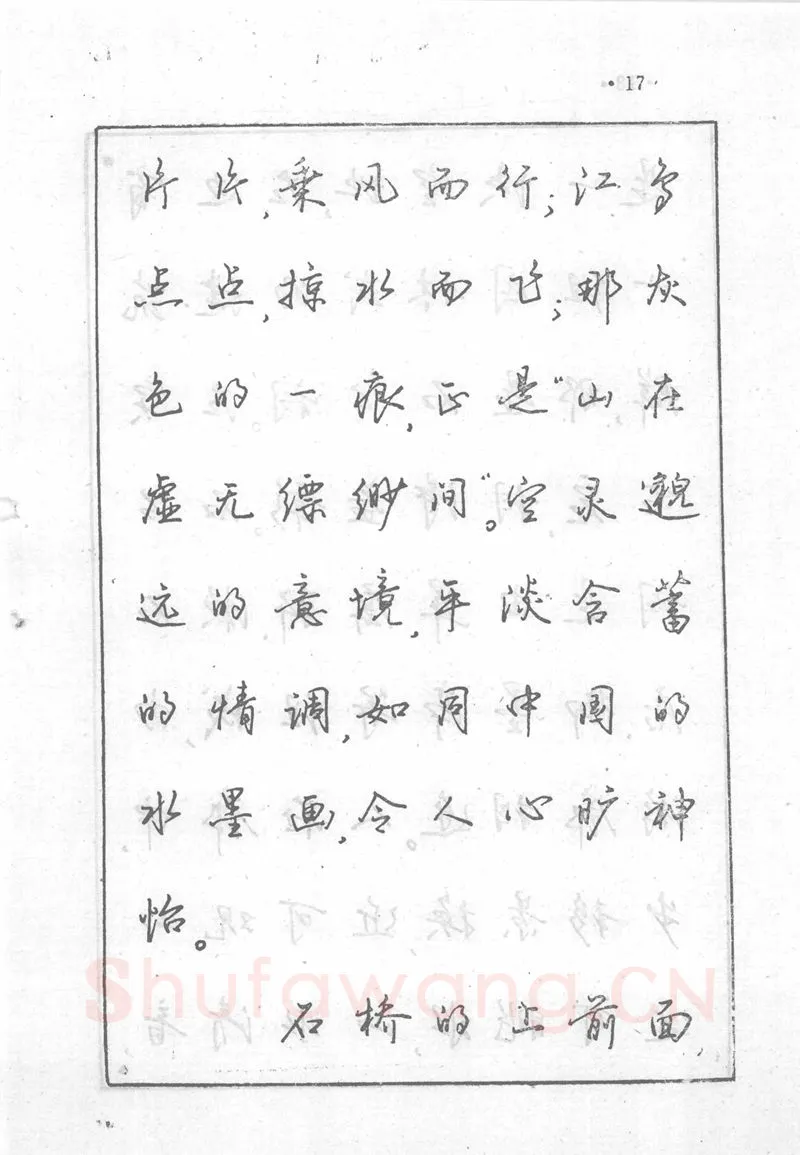 ·17·
片片,乘风而行;江鸟
点点,掠水而飞;那灰
色的一痕,正是“山在
虚无缥缈间”。空灵邈
远的意境,平淡含蓄
的情调,如同中国的
水墨画,令人心旷神
怡。
石桥的上前面
Shufawang.CN